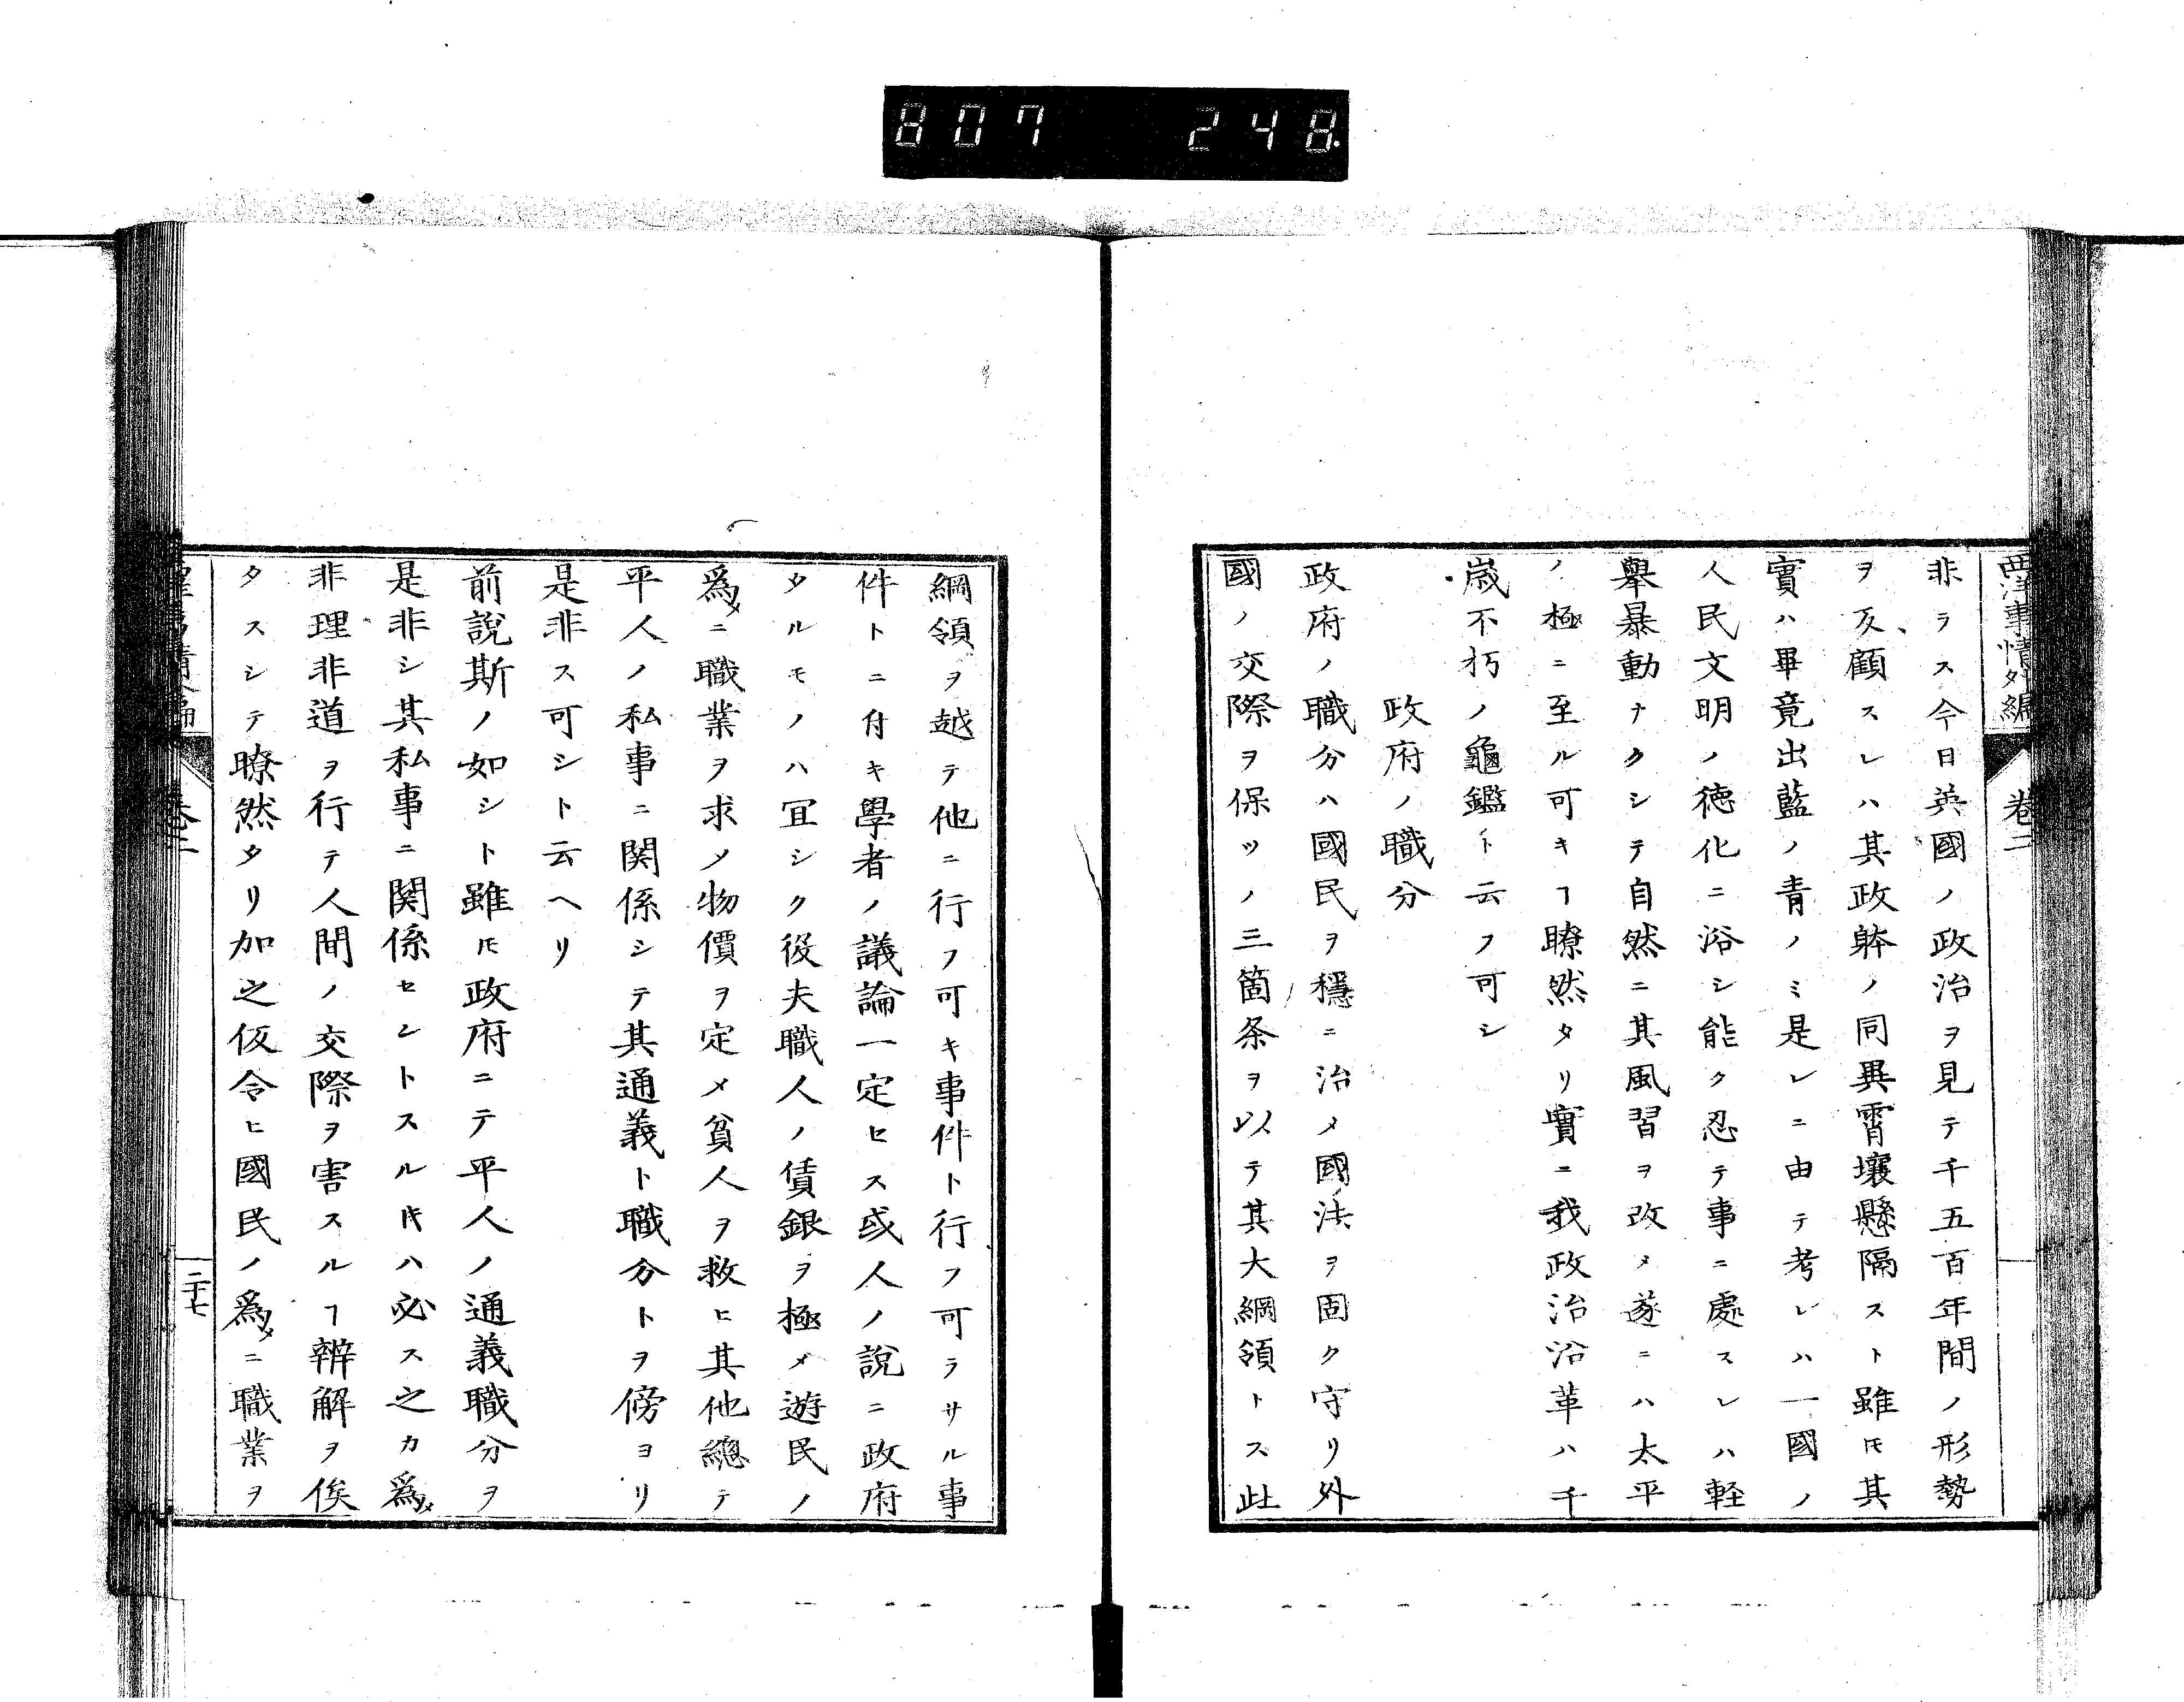 807 248
西洋事情外編 卷二
非ラス今日英國ノ政治ヲ見テ千五百年間ノ形勢
ヲ反顧スレハ其政躰ノ同異霄壤懸隔スト雖𪜈其
實ハ畢竟出藍ノ青ノミ是レニ由テ考レハ一國ノ
人民文明ノ徳化ニ浴シ能ク忍テ事ニ處スレハ軽
擧暴動ナクシテ自然ニ其風習ヲ改メ遂ニハ太平
ノ極ニ至ル可キヿ瞭然タリ實ニ我政治沿革ハ千
歳不朽ノ龜鑑ト云フ可シ
政府ノ職分
政府ノ職分ハ國民ヲ穩ニ治メ國法ヲ固ク守リ外
國ノ交際ヲ保ツノ三箇条ヲ以テ其大綱領トス此
綱領ヲ越テ他ニ行フ可キ事件ト行フ可ラサル事
件トニ付キ學者ノ議論一定セス或人ノ說ニ政府
タルモノハ冝シク役夫職人ノ賃銀ヲ極メ遊民ノ
爲メニ職業ヲ求メ物價ヲ定メ貧人ヲ救ヒ其他總テ
平人ノ私事ニ関係シテ其通義ト職分トヲ傍ヨリ
是非ス可シト云ヘリ
前說斯ノ如シト雖𪜈政府ニテ平人ノ通義職分ヲ
是非シ其私事ニ関係セントスル𬼀ハ必ス之カ爲メ
非理非道ヲ行テ人間ノ交際ヲ害スルヿ辨解ヲ俟
タスシテ瞭然タリ加之仮令ヒ國民ノ爲メニ職業ヲ
卷二
二十七